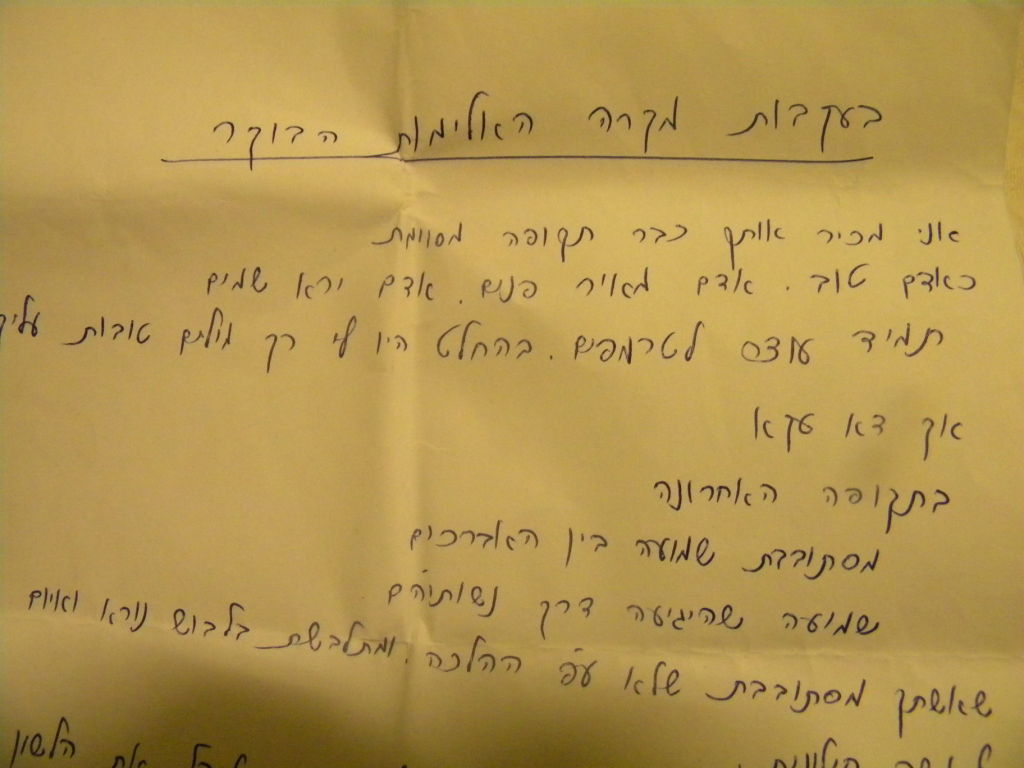 בעקבות מקרה האלימות הבוקר
אני מכיר אותך כבר תקופה מסוימת
כאדם טוב. אדם מאיר פנים. אדם ירא שמים
תמיד עוצר לטרמפים. בהחלט היו לי רק מילים טובות עליך
אך דא עקא
בתקופה האחרונה
מסתובבת שמועה בין האברכים
שמועה שהיגיעה דרך נשותיהם
שאשתך מסתובבת שלא ע"פ ההלכה. ומתלבשת בלבוש נורא ואיום
את הלשון